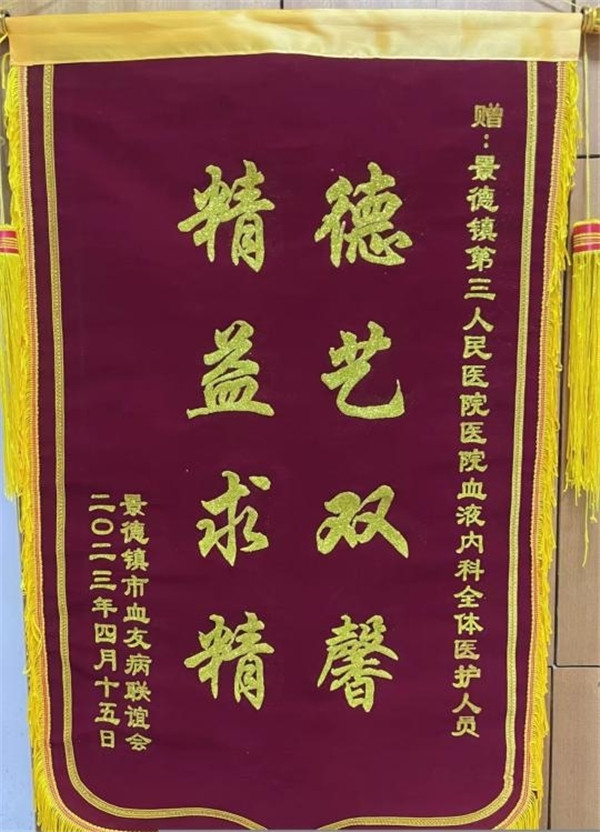 赠：景德镇第三人民医院医院血液内科全体医护人员
德艺双馨
精益求精
景德镇市血友病联谊会
二〇二三年四月十五日